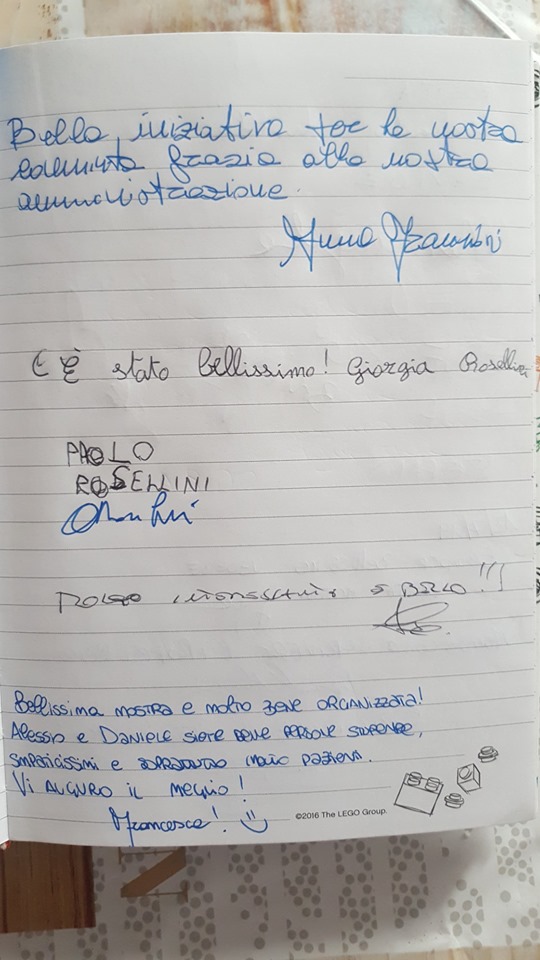 Bella iniziativa per la nostra
comunità grazie alla nostra
amministrazione.
Anna
È stato bellissimo! Giorgia Rosellini
PAOLO
ROSELLINI
MOLTO INTERESSANTE E BELLO!!!
Bellissima MOSTRA e MOLTO BENE ORGANIZZATA!
Alessio e DANIELE SIETE DELLE PERSONE STUPENDE,
SIMPATICISSIMI e SOPRATTUTTO MOLTO PAZIENTI.
Vi AUGURO IL MEGLIO!
Francesca! :)
©2016 The LEGO Group.